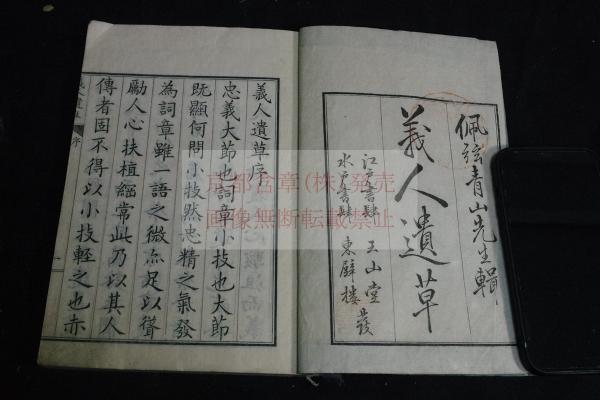 佩弦青山先生輯
義人遺草
江戸書肆 玉山堂
水戸書肆 東壁樓 發
義人遺草序
忠義大節也詞章小技也大節
既顯何問小技然忠精之氣發
為詞章雖一語之微亦足以聳
勵人心扶植經常此乃以其人
傳者固不得以小技輕之也赤
序
京都古章(株)発売
画像無断転載禁止